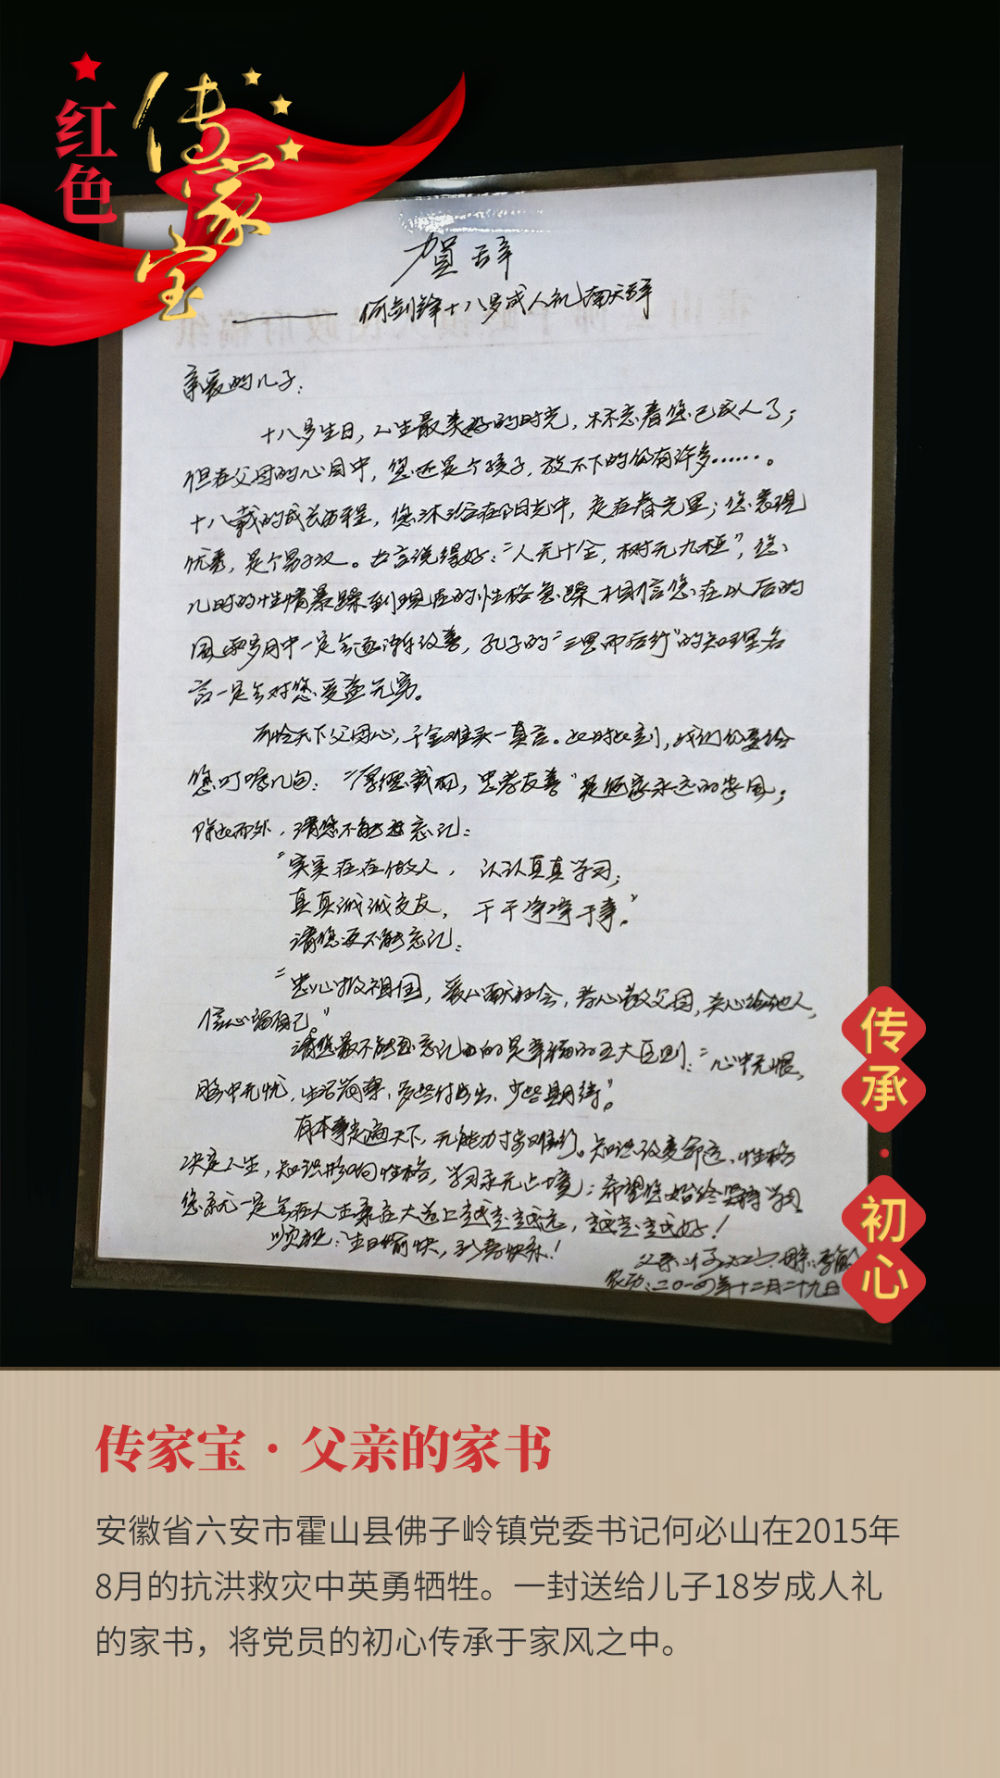 红色
传家宝
贺辞
何剑锋十八岁成人礼贺辞
亲爱的儿子：
十八岁生日，人生最美好的时光，标志着您已成人了；
但在父母的心目中，您还是个孩子，放不下的仍有许多……。
十八载的成长历程，您沐浴在阳光中，走在春光里；您表现
优秀，是个男子汉。古言说得好："人无十全，树无九桠"，您
儿时的性情暴躁到现在的性格急躁相信您在以后的
风雨岁月中一定会逐渐改善，孔子的"三思而后行"的知理名
言一定会对您受益无穷。
可怜天下父母心，千金难买一真言。此时此刻，我们仍要给
您叮嘱几句："厚德载物，忠孝友善"是何家永远的家风；
除此而外，请您不能忘记：
"实实在在做人，认认真真学习；
真真诚诚交友，干干净净干事。"
请您更不能忘记：
"忠心报祖国，爱心献社会，孝心敬父母，关心给他人，
信心留自己。"
请您最不能忘记的是幸福的五大原则："心中无恨，
脑中无忧，生活简单，多些付出、少些期待。"
有本事走遍天下，无能力寸步难行。知识改变命运、性格
决定人生，知识影响性格，学习永无止境；希望您始终坚持学习
您就一定会在人生康庄大道上越走越远，越走越好！
顺祝：生日愉快，新春快乐！
父亲：何必山 母亲：李
二〇一四年十二月二十九日
传承·初心
传家宝·父亲的家书
安徽省六安市霍山县佛子岭镇党委书记何必山在2015年
8月的抗洪救灾中英勇牺牲。一封送给儿子18岁成人礼
的家书，将党员的初心传承于家风之中。